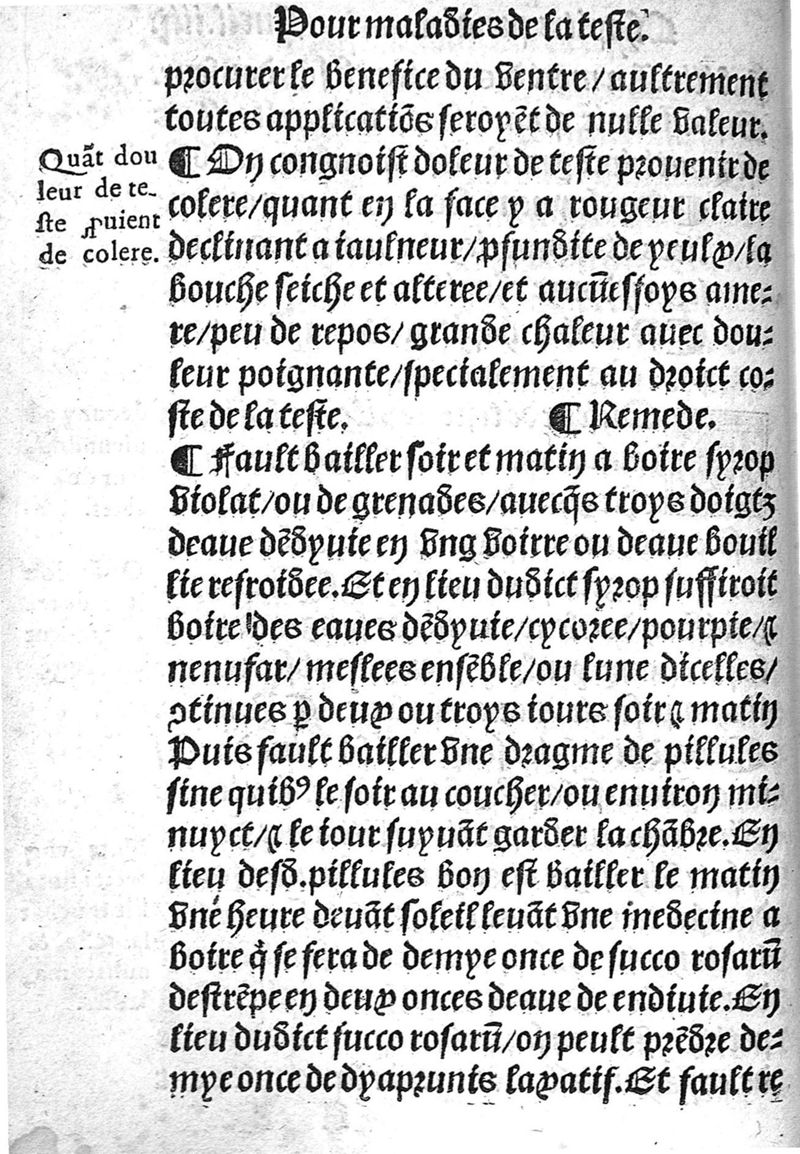 Pour maladies de la teste.
procurer le benefice du ventre/aultrement
toutes applicatiõs seroyẽt de nulle valeur.
Quãt dou
leur de te-
ste ꝓuient
de colere.
¶ On congnoist doleur de teste prouenir de
colere/quant en la face y a rougeur claire
declinant a iaulneur/ꝓfundite de yeulx/la
bouche seiche et alteree/et aucũesfoys ame-
re/peu de repos/grande chaleur auec dou-
leur poignante/specialement au droict co-
ste de la teste. ¶ Remede.
¶ Fault bailler soir et matin a boire syrop
violat/ou de grenades/auecq̃s troys doigtz
deaue dẽdyuie en vng voirre ou deaue bouil
lie refroidee. Et en lieu dudict syrop suffiroit
boire des eaues dẽdyuie/cycoree/pourpie/⁊
nenufar/meslees ensẽble/ou lune dicelles/
ꝯtinues ꝑ deux ou troys iours soir ⁊ matin
Puis fault bailler vne dragme de pillules
sine quibꝰ le soir au coucher/ou enuiron mi-
nuyct/⁊ le iour suyuãt garder la chãbre. En
lieu desd. pillules bon est bailler le matin
vne heure deuãt soleil leuãt vne medecine a
boire q̃ se fera de demye once de succo rosarũ
destrẽpe en deux onces deaue de endiuie. En
lieu dudict succo rosarũ/on peult prẽdre de-
mye once de dyaprunis laxatif. Et fault re